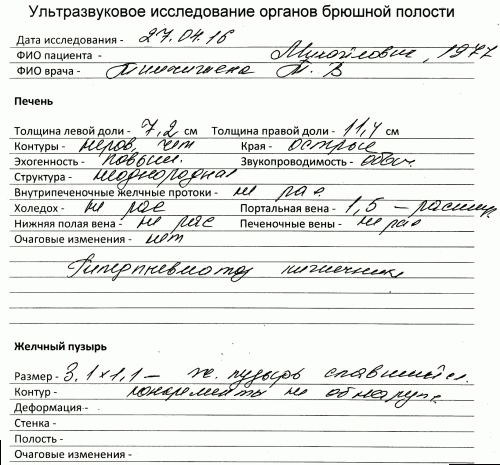 Ультразвуковое исследование органов брюшной полости
Дата исследования - 27.04.16
ФИО пациента - Михайлович, 1977
ФИО врача - Т. В
Печень
Толщина левой доли - 7,2 см Толщина правой доли - 11,4 см
Контуры - неров, чет Края - острые
Эхогенность - повыш. Звукопроводимость - обыч.
Структура - неоднородная
Внутрипеченочные желчные протоки - не рас
Холедох - не рас Портальная вена - 1,5 – расшир
Нижняя полая вена - не рас Печеночные вены - не рас
Очаговые изменения - нет
Гиперпневматоз кишечника
Желчный пузырь
Размер - 3,1×1,1 – ж. пузырь спавшийся.
Контур - конкременты не обнаруж.
Деформация -
Стенка -
Полость -
Очаговые изменения -